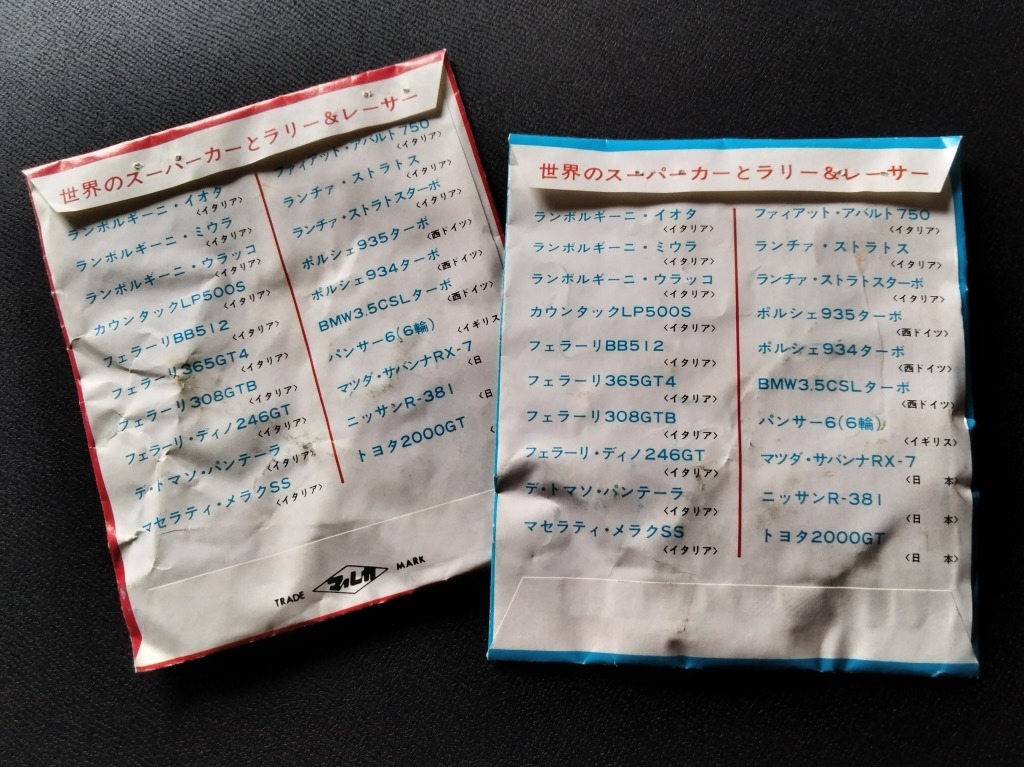 世界のスーパーカーとラリー&レーサー
ランボルギーニ・イオタ
〈イタリア〉
ランボルギーニ・ミウラ
〈イタリア〉
ランボルギーニ・ウラッコ
〈イタリア〉
カウンタックLP500S
〈イタリア〉
フェラーリBB512
〈イタリア〉
フェラーリ365GT4
〈イタリア〉
フェラーリ308GTB
〈イタリア〉
フェラーリ・ディノ246GT
〈イタリア〉
デ・トマソ・パンテーラ
〈イタリア〉
マセラティ・メラクSS
〈イタリア〉
ファィアット・アバルト750
〈イタリア〉
ランチァ・ストラトス
〈イタリア〉
ランチァ・ストラトスターボ
〈イタリア〉
ポルシェ935ターボ
〈西ドイツ〉
ポルシェ934ターボ
〈西ドイツ〉
BMW3.5CSLターボ
〈西ドイツ〉
パンサー6(6輪)
〈イギリス
マツダ・サバンナRX-7
〈日
ニッサンR-381
〈日
トヨタ2000GT
〈
TRADE マルカ MARK
世界のスーパーカーとラリー&レーサー
ランボルギーニ・イオタ
〈イタリア〉
ランボルギーニ・ミウラ
〈イタリア〉
ランボルギーニ・ウラッコ
〈イタリア〉
カウンタックLP500S
〈イタリア〉
フェラーリBB512
〈イタリア〉
フェラーリ365GT4
〈イタリア〉
フェラーリ308GTB
〈イタリア〉
フェラーリ・ディノ246GT
〈イタリア〉
デ・トマソ・パンテーラ
〈イタリア〉
マセラティ・メラクSS
〈イタリア〉
ファィアット・アバルト750
〈イタリア〉
ランチァ・ストラトス
〈イタリア〉
ランチァ・ストラトスターボ
〈イタリア〉
ポルシェ935ターボ
〈西ドイツ〉
ポルシェ934ターボ
〈西ドイツ〉
BMW3.5CSLターボ
〈西ドイツ〉
パンサー6(6輪)
〈イギリス〉
マツダ・サバンナRX-7
〈日 本〉
ニッサンR-381
〈日 本〉
トヨタ2000GT
〈日 本〉